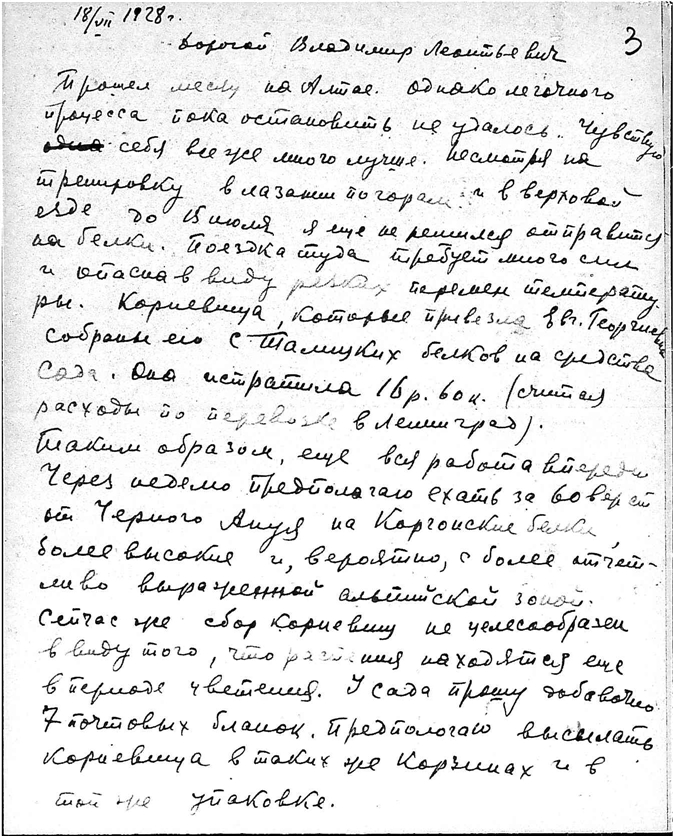 18/VII 1928 г.
3
Дорогой Владимир Леонтьевич
Прошел месяц на Алтае. Однако легочного
процесса пока остановить не удалось. Чувствую
себя все же много лучше. Несмотря на
тренировку в лазании по горам и в верховой
езде до 15 июля я еще не решился отправится
на белки. Поездка туда требует много сил
и опасна в виду резких перемен температу
ры. Корневища, которые привезла Евг. Георгиевна
собраны ею с Талицких белков на средства
Сада. Она истратила 16 р. 60 к. (считая
расходы по перевозке в Ленинград).
Таким образом, еще вся работа впереди
Через неделю предполагаю ехать за 60 верст
от Черного Ануя на Коргонские белки,
более высокие и, вероятно, с более отчет-
ливо выраженной альпийской зоной.
Сейчас же сбор корневищ не целесообразен
в виду того, что растения находятся еще
в периоде цветения. У сада прошу добавочно
7 почтовых бланок. Предпологаю высылать
корневища в таких же корзинах и в
той же упаковке.